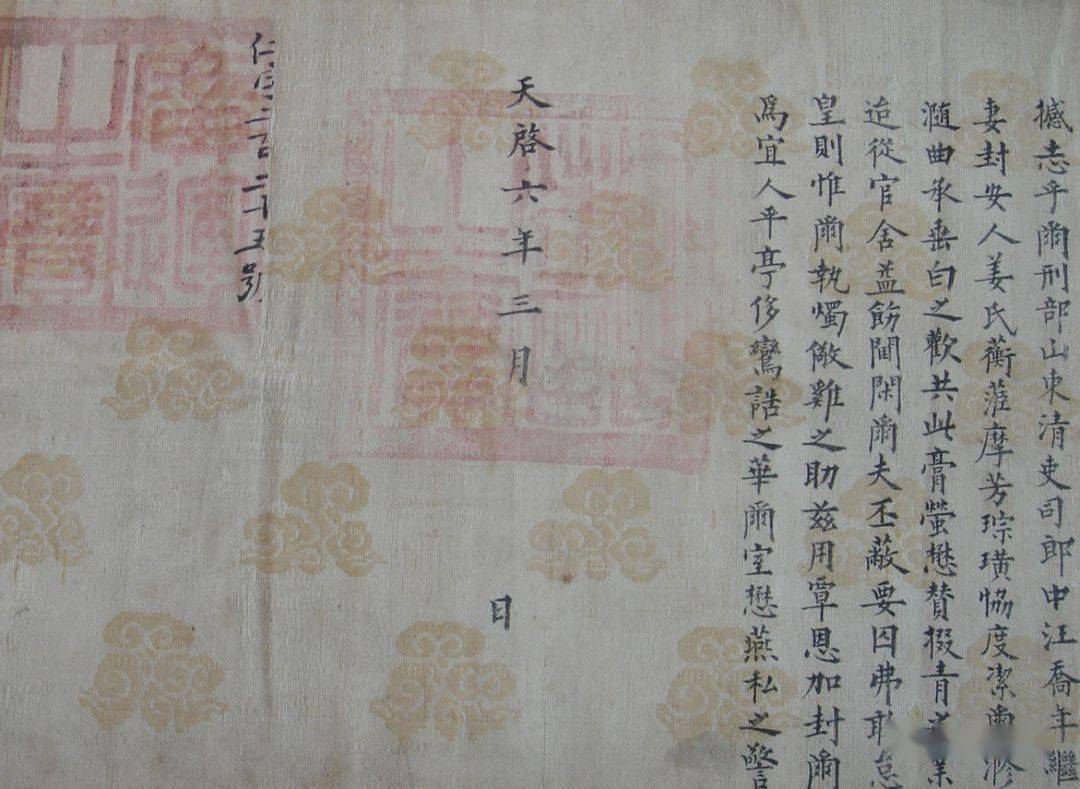 撼志乎爾刑部山東清吏司郎中江喬年繼
妻封安人姜氏蘅蒞摩芳琮璜恊度潔爾滫
瀡曲承垂白之歡共此膏螢懋賛掇青之業
迨從官舍益飭閫閑爾夫丕蔽要囚弗敢怠
皇則惟爾執燭儆雞之助兹用覃恩加封爾
爲宜人平亭侈鸞誥之華爾室懋燕私之警
天啓六年三月
日
仁字二百二十五號